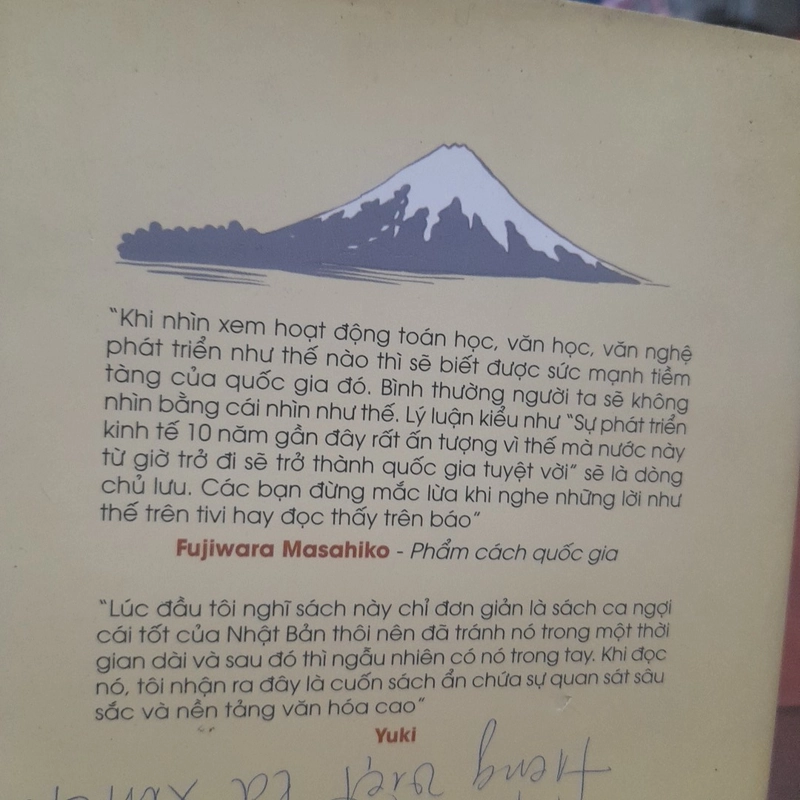 "Khi nhìn xem hoạt động toán học, văn học, văn nghệ
phát triển như thế nào thì sẽ biết được sức mạnh tiềm
tàng của quốc gia đó. Bình thường người ta sẽ không
nhìn bằng cái nhìn như thế. Lý luận kiểu như "Sự phát triển
kinh tế 10 năm gần đây rất ấn tượng vì thế mà nước này
từ giờ trở đi sẽ trở thành quốc gia tuyệt vời" sẽ là dòng
chủ lưu. Các bạn đừng mắc lừa khi nghe những lời như
thế trên tivi hay đọc thấy trên báo"
Fujiwara Masahiko - Phẩm cách quốc gia
"Lúc đầu tôi nghĩ sách này chỉ đơn giản là sách ca ngợi
cái tốt của Nhật Bản thôi nên đã tránh nó trong một thời
gian dài và sau đó thì ngẫu nhiên có nó trong tay. Khi đọc
nó, tôi nhận ra đây là cuốn sách ẩn chứa sự quan sát sâu
sắc và nền tảng văn hóa cao"
Yuki